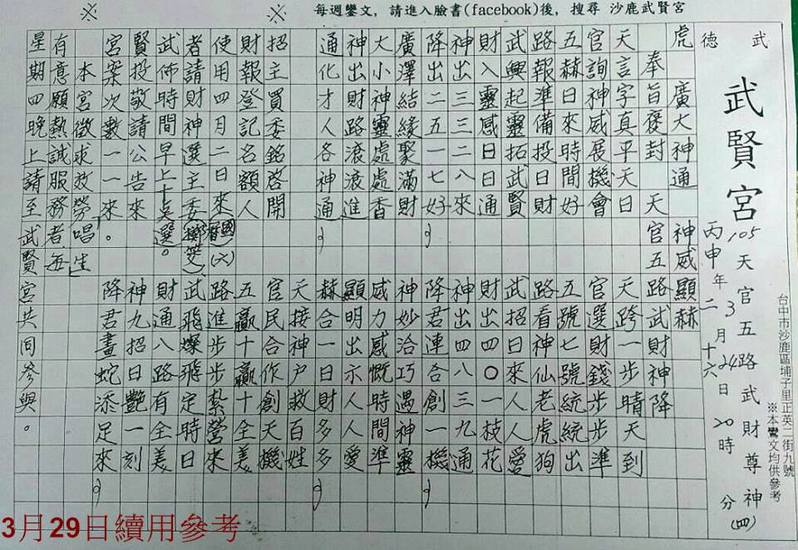 ※ ※ 每週鑾文，請進入臉書(facebook)後，搜尋 沙鹿武賢宮
武德
武賢宮
天官五路武財尊神(四)
105年3月24日20時 分
丙申年二月十六
台中市沙鹿區埔子里正英二街九號
※本鸞文均供參考
虎 廣大神通 神威顯赫
奉旨褒封 天官五路武財神降
天言字真平天日
官詢神威展機會
五赫日來時間好
路報準備投日財
武興起靈拓武賢
財入靈感日日通
神出三三二八來
降出二五一七好
廣澤結緣聚滿財
大小神靈處處香
神出財路滾滾進
通化才人各神通
招主買委銘啓開
財報登記名額人
使用四月二日來(國曆)(六)
者請財神選主委(擲筊)
武佈時間早上十點選。
賢投敬請公告來
宮案次數一一來。
天跨一步晴天到
官選財錢步步準
五號七號統統出
路看神仙老虎狗
武招日來人人愛
財出四〇一技花
神出出八三九通
降君連合創一機
神妙洽巧遇神靈
威力感慨時間準
顯明出示人人愛
赫合一 財多多
天接神戶救百姓
官民合作創天機
五贏十贏十全美
路進步步紮營來
武飛燦飛定時日
財通八路有全美
神九招日艷一刻
降君畫蛇添足來
本宮徵求效勞"唱生"
有意願熱誠服務者每
星期四晚上請至武賢宮共同參與。
3月29日續用參考